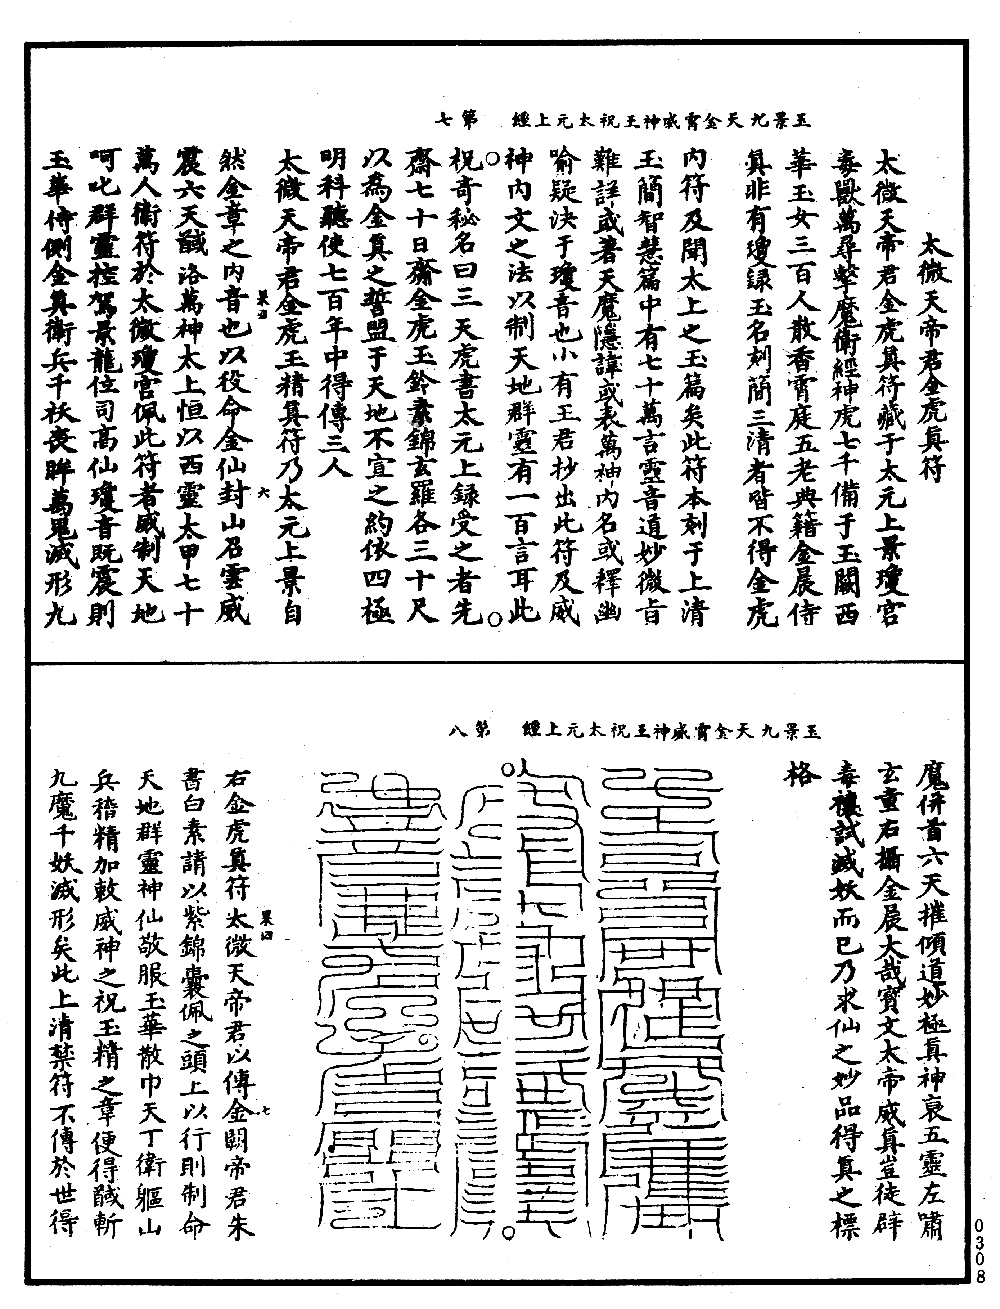 玉景九天金霄威神王祝太元上經 第七
太微天帝君金虎真符
太微天帝君金虎真符藏于太元上景瓊宮
毒獸萬尋擊魔衛經神虎七千備于玉闕西
華玉女三百人散香霄庭五老典籍金晨侍
真非有瓊録玉名刻簡三清者皆不得金虎
內符及聞太上之玉篇矣此符本刻于上清
玉簡智慧篇中有七十萬言靈音道妙微旨
難詳或著天魔隱諱或表萬神內名或釋幽
喻疑決于瓊音也小有王君抄出此符及威
神內文之法以制天地群靈有一百言耳此
祝奇秘名曰三天虎書太元上録受之者先
齋七十日齎金虎玉鈴素錦玄羅各三十尺
以爲金真之誓盟于天地不宣之約依四極
明科聽使七百年中得傳三人
太微天帝君金虎玉精真符乃太元上景自
果四
六
然金章之內音也以役命金仙封山召雲威
震六天馘洛萬神太上恒以西靈太甲七十
萬人衛符於太微瓊宮佩此符者威制天地
呵叱群靈控駕景龍位司高仙瓊音既震則
玉華侍側金真衛兵千妖喪眸萬鬼滅形九
玉景九天金霄威神王祝太元上經 第八
魔併首六天摧傾道妙極真神哀五靈左嘯
玄童右攝金晨大哉寶文太帝威真豈徒辟
毒穰試滅妖而已乃求仙之妙品得真之標
格
右金虎真符太微天帝君以傳金闕帝君朱
果四
七
書白素請以紫錦囊佩之頭上以行則制命
天地群靈神仙敬服玉華散巾天丁衛軀山
兵稽精加敕威神之祝玉精之章便得馘斬
九魔千妖滅形矣此上清禁符不傳於世得
0308